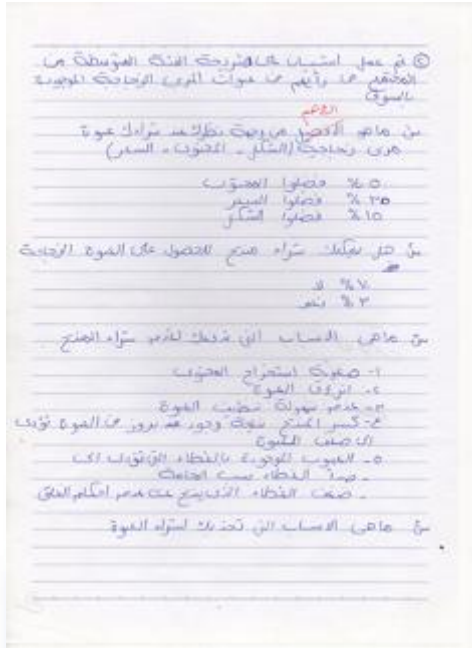 © تم عمل استبيان على شريحة الفئة المتوسطة من
المجتمع ما رأيهم فى عبوات المربى الزجاجية الموجودة
بالسوق
الأهم
س ماهو الأفضل من وجهة نظرك عند شراءك عبوة
مربى زجاجية (الشكل - المحتوى - السعر)
٥٠ % فضلوا المحتوى
٣٥ % فضلوا السعر
١٥ % فضلوا الشكل
س هل يمكنك شراء منتج للحصول على العبوة الزجاجة
٧٠ % لا
٣٠ % نعم
س ماهى الاسباب التى تدفعك لعدم شراء المنتج
١- صعوبة استخراج المحتوى
٢- انزلاق العبوة
٣- عدم سهولة تنظيف العبوة
٤- كسر المنتج نتيجة وجود بروز فى العبوة تؤدى
الى ضعف العبوة
٥- العيوب الموجودة بالغطاء التى تؤدى الى
- صدأ الغطاء بسبب الخامة
- ضعف الغطاء الذى ينتج عنه عدم احكام الغلق
س ماهى الاسباب التى تجذبك لشراء العبوة